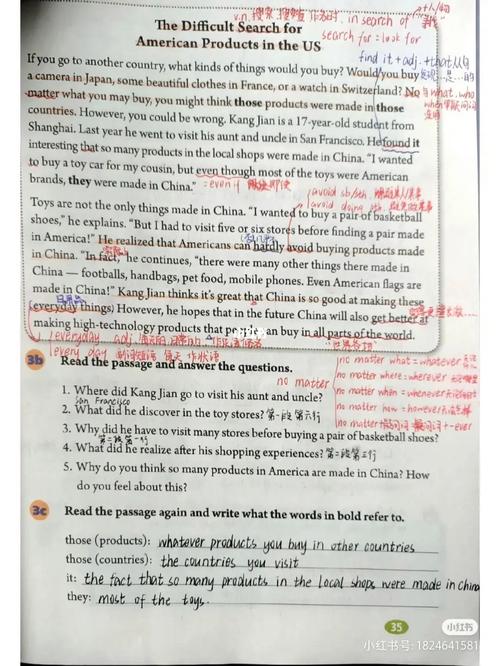 v.n. 搜索，搜查 作名词时, in search of "寻找"
The Difficult Search for
search for = look for
American Products in the US
find it + adj. + that从句
If you go to another country, what kinds of things would you buy? Would you buy
a camera in Japan, some beautiful clothes in France, or a watch in Switzerland? No
matter what you may buy, you might think those products were made in those
countries. However, you could be wrong. Kang Jian is a 17-year-old student from
Shanghai. Last year he went to visit his aunt and uncle in San Francisco. He found it
interesting that so many products in the local shops were made in China. "I wanted
to buy a toy car for my cousin, but even though most of the toys were American
brands, they were made in China."
= even if
avoid sb/sth.
avoid doing sth.
Toys are not the only things made in China. "I wanted to buy a pair of basketball
shoes," he explains. "But I had to visit five or six stores before finding a pair made
in America!" He realized that Americans can hardly avoid buying products made
in China. "In fact," he continues, "there were many other things there made in
China — footballs, handbags, pet food, mobile phones. Even American flags are
made in China!" Kang Jian thinks it's great that China is so good at making these
日用品
everyday things. However, he hopes that in the future China will also get better at
making high-technology products that people can buy in all parts of the world.
everyday adj.
世界各地
every day 副词短语 每天 作状语
3b Read the passage and answer the questions.
no matter
no matter what = whatever
no matter where = wherever
no matter when = whenever
no matter how = however
no matter + 疑问词 = 疑问词 + -ever
1. Where did Kang Jian go to visit his aunt and uncle?
San Francisco
2. What did he discover in the toy stores? 第一段第六行
3. Why did he have to visit many stores before buying a pair of basketball shoes?
第二段第一行
4. What did he realize after his shopping experiences? 第二段第三行
5. Why do you think so many products in America are made in China? How
do you feel about this?
3c Read the passage again and write what the words in bold refer to.
those (products): whatever products you buy in other countries
those (countries): the countries you visit
it: the fact that so many products in the local shops were made in china
they: most of the toys.
35
小红书
小红书号: 1824641581